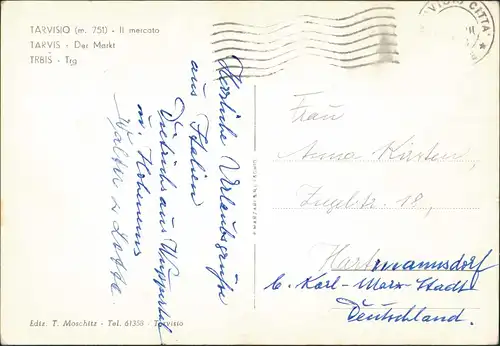 TARVISIO (m. 751) - Il mercato
TARVIS - Der Markt
TRBIŠ - Trg
Herzliche Urlaubsgrüße
aus Italien
Dietrichs aus Wuppertal
u. Hohenems
Walter u Lotte
Frau
Anna Kirsten,
18,
Hartmannsdorf
b. Karl-Marx-Stadt
Deutschland.
Edit. T. Moschitz - Tel. 61358 - Tarvisio